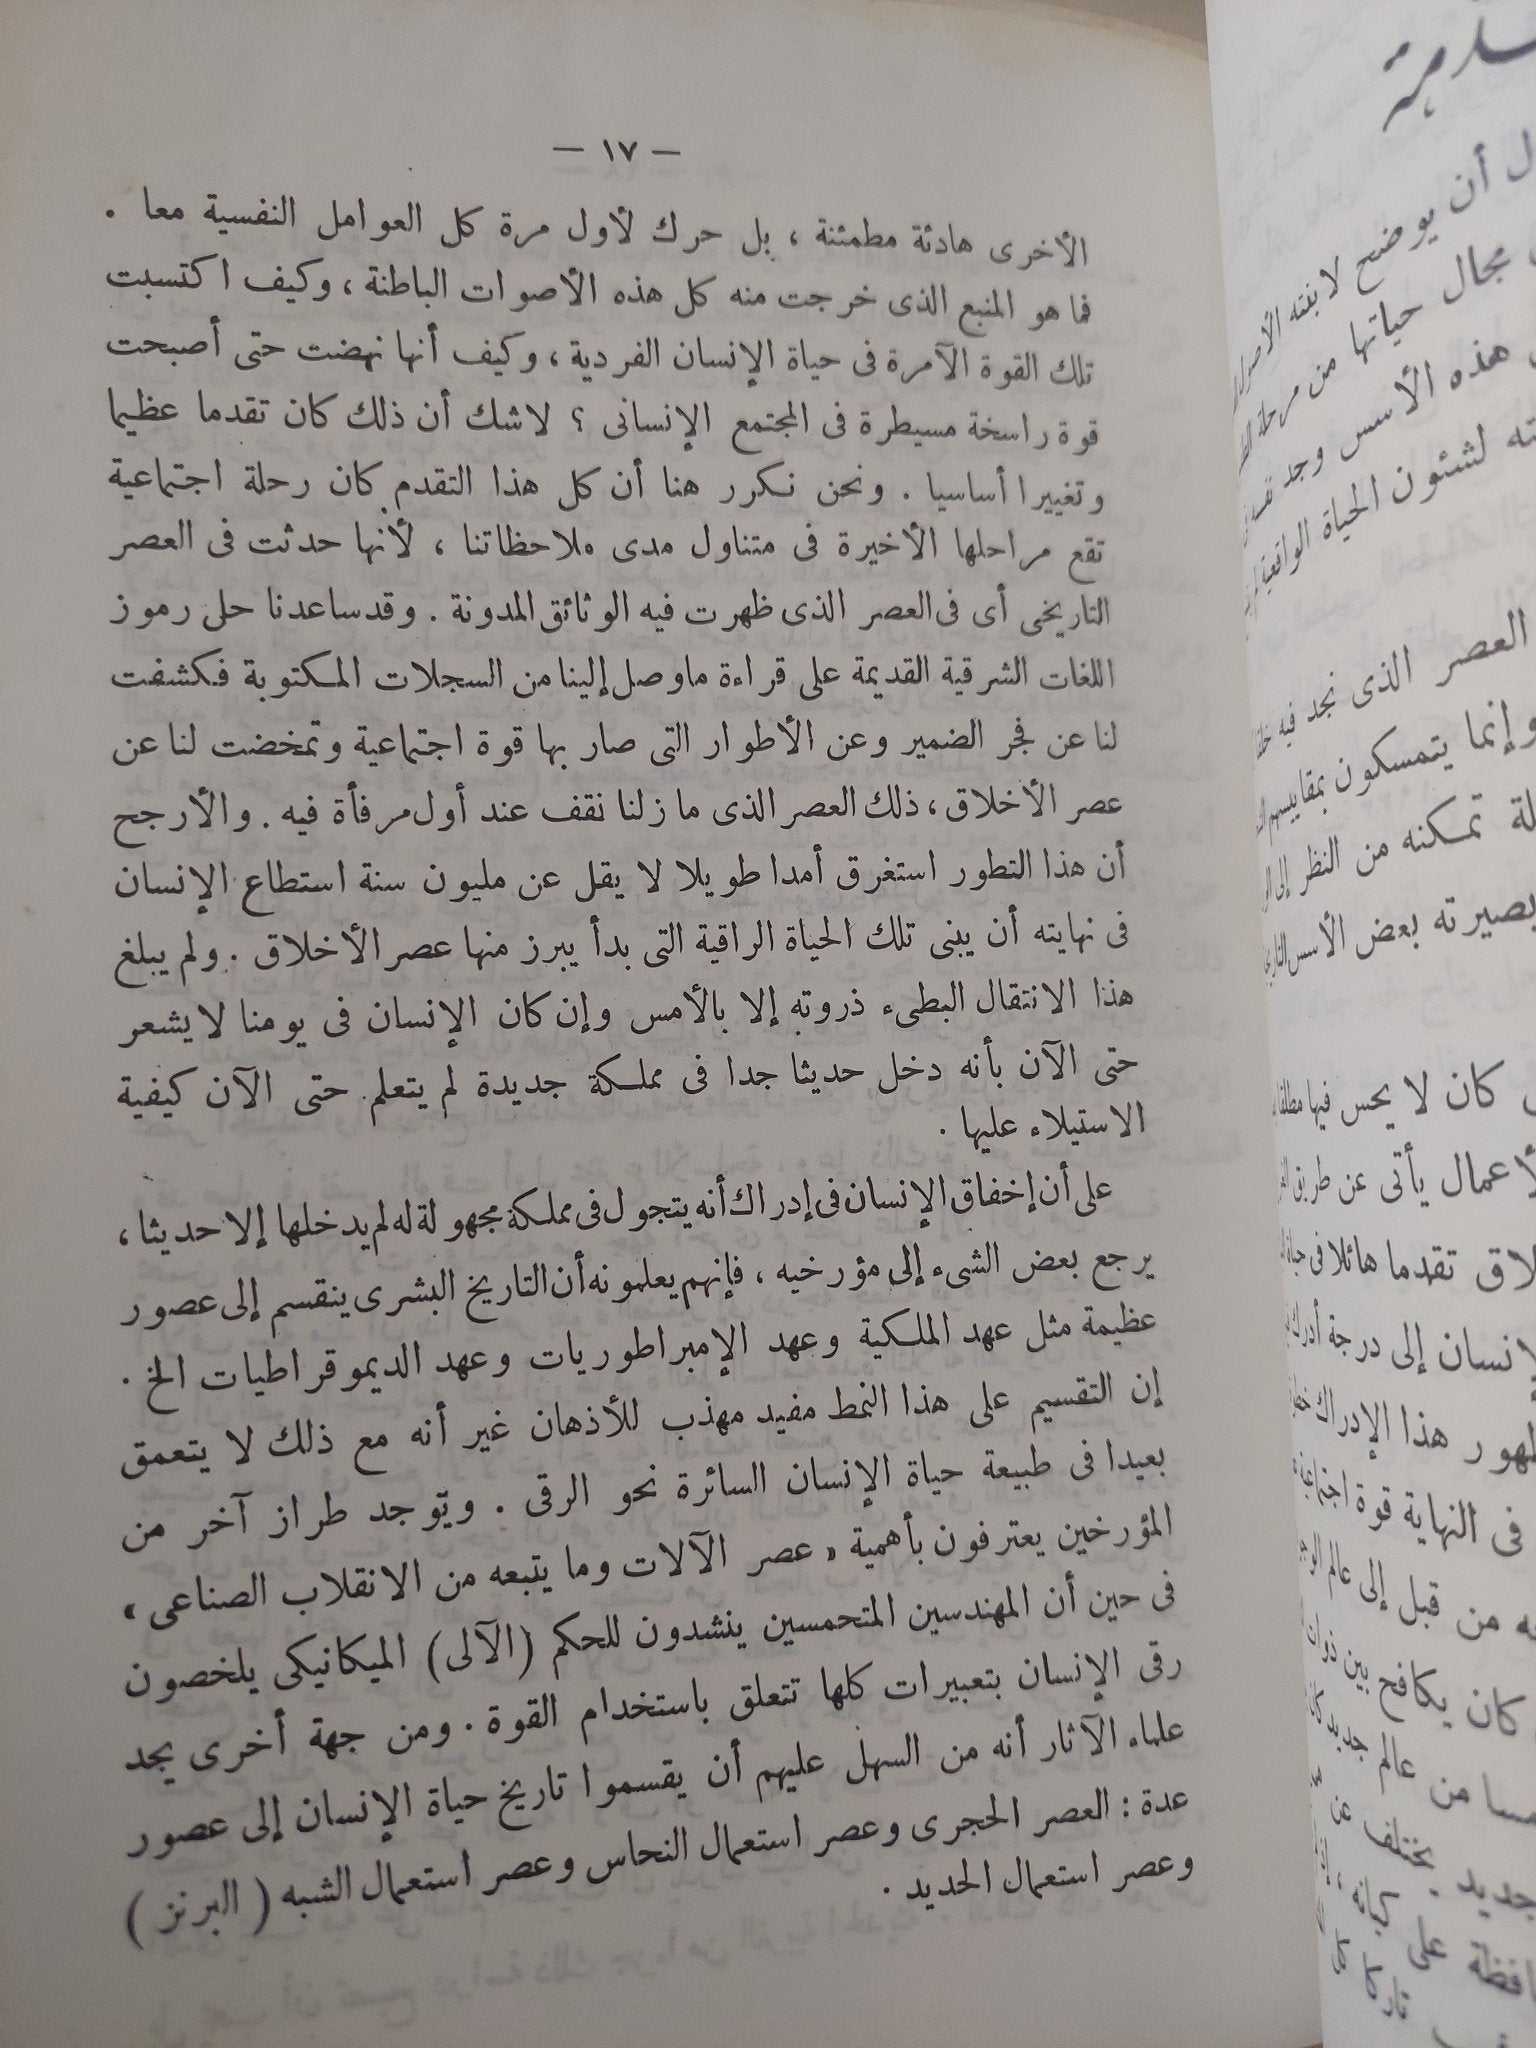 — ١٧ —
الأخرى هادئة مطمئنة ، بل حرك لأول مرة كل العوامل النفسية معا .
فما هو المنبع الذى خرجت منه كل هذه الأصوات الباطنة ، وكيف اكتسبت
تلك القوة الآمرة فى حياة الإنسان الفردية ، وكيف أنها نهضت حتى أصبحت
قوة راسخة مسيطرة فى المجتمع الإنسانى ؟ لاشك أن ذلك كان تقدما عظيما
وتغييرا أساسيا . ونحن نكرر هنا أن كل هذا التقدم كان رحلة اجتماعية
تقع مراحلها الأخيرة فى متناول مدى ملاحظاتنا ، لأنها حدثت فى العصر
التاريخى أى فى العصر الذى ظهرت فيه الوثائق المدونة . وقد ساعدنا حل رموز
اللغات الشرقية القديمة على قراءة ماوصل إلينا من السجلات المكتوبة فكشفت
لنا عن فجر الضمير وعن الأطوار التى صار بها قوة اجتماعية وتمخضت لنا عن
عصر الأخلاق ، ذلك العصر الذى ما زلنا نقف عند أول مرفأة فيه . والأرجح
أن هذا التطور استغرق أمدا طويلا لا يقل عن مليون سنة استطاع الإنسان
فى نهايته أن يبنى تلك الحياة الراقية التى بدأ يبرز منها عصر الأخلاق . ولم يبلغ
هذا الانتقال البطىء ذروته إلا بالأمس وإن كان الإنسان فى يومنا لا يشعر
حتى الآن بأنه دخل حديثا جدا فى مملكة جديدة لم يتعلم حتى الآن كيفية
الاستيلاء عليها .
على أن إخفاق الإنسان فى إدراك أنه يتجول فى مملكة مجهولة له لم يدخلها إلا حديثا ،
يرجع بعض الشىء إلى مؤرخيه ، فإنهم يعلمونه أن التاريخ البشرى ينقسم إلى عصور
عظيمة مثل عهد الملكية وعهد الإمبراطوريات وعهد الديموقراطيات الخ .
إن التقسيم على هذا النمط مفيد مهذب للأذهان غير أنه مع ذلك لا يتعمق
بعيدا فى طبيعة حياة الإنسان السائرة نحو الرقى . ويوجد طراز آخر من
المؤرخين يعترفون بأهمية « عصر الآلات وما يتبعه من الانقلاب الصناعى »
فى حين أن المهندسين المتحمسين ينشدون للحكم (الآلى) الميكانيكى يلخصون
رقى الإنسان بتعبيرات كلها تتعلق باستخدام القوة . ومن جهة أخرى يجد
علماء الآثار أنه من السهل عليهم أن يقسموا تاريخ حياة الإنسان إلى عصور
عدة : العصر الحجرى وعصر استعمال النحاس وعصر استعمال الشبه ( البرنز )
وعصر استعمال الحديد .
ل أن يوضح لابنته الأصول
مجال حياتها من مرحلة
هذه الأسس وجد نفسه
ته لشئون الحياة الواقعية
العصر الذى نجد فيه
وإنما يتمسكون بمقاييسهم
لة تمكنه من النظر إلى
بصيرته بعض الأسس
كان لا يحس فيها مطلقا
لأعمال يأتى عن طريق
لاق تقدما هائلا فى حياة
لإنسان إلى درجة أدرك
ظهور هذا الإدراك
فى النهاية قوة اجتماعية
ه من قبل إلى عالم
كان يكافح بين
من عالم جديد
جديد يختلف عن
افظة على كيانه